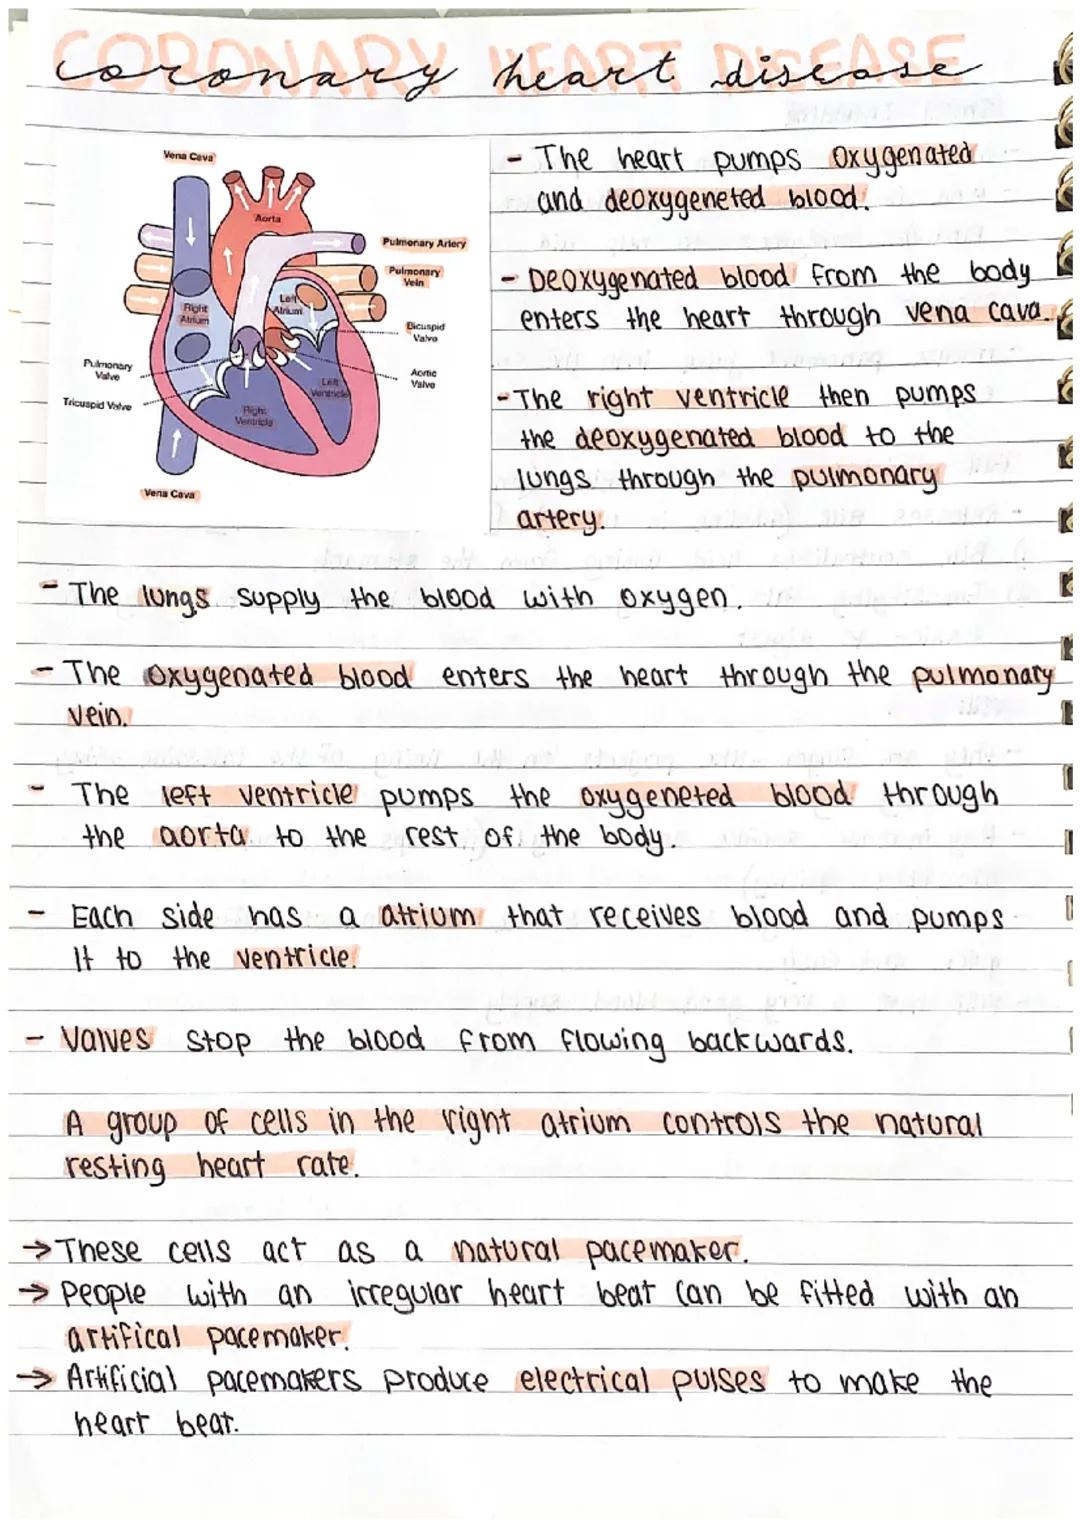 CORONARY HEART DISEASE
coronary heart disease
Vena Cava
Aorta
Pulmonary Artery
Pulmonary
Vein
Left
Atrium
Right
Atrium
Bicuspid
Valve
Pulmonary
Valve
Aortic
Valve
Left
Ventricle
Tricuspid Valve
Right
Ventricle
Vena Cava
- The heart pumps oxygenated
and deoxygeneted blood.
- Deoxygenated blood from the body
enters the heart through vena cava.
- The right ventricle then pumps
the deoxygenated blood to the
lungs through the pulmonary
artery.
- The lungs supply the blood with oxygen.
- The oxygenated blood enters the heart through the pulmonary
vein.
- The left ventricle pumps the oxygeneted blood through
the aorta to the rest of the body.
- Each side has a atrium that receives blood and pumps
It to the ventricle.
- Valves stop the blood from flowing backwards.
A group of cells in the right atrium controls the natural
resting heart rate.
→ These cells act as a natural pacemaker.
→ People with an irregular heart beat can be fitted with an
artifical pacemaker.
→ Artificial pacemakers produce electrical pulses to make the
heart beat.